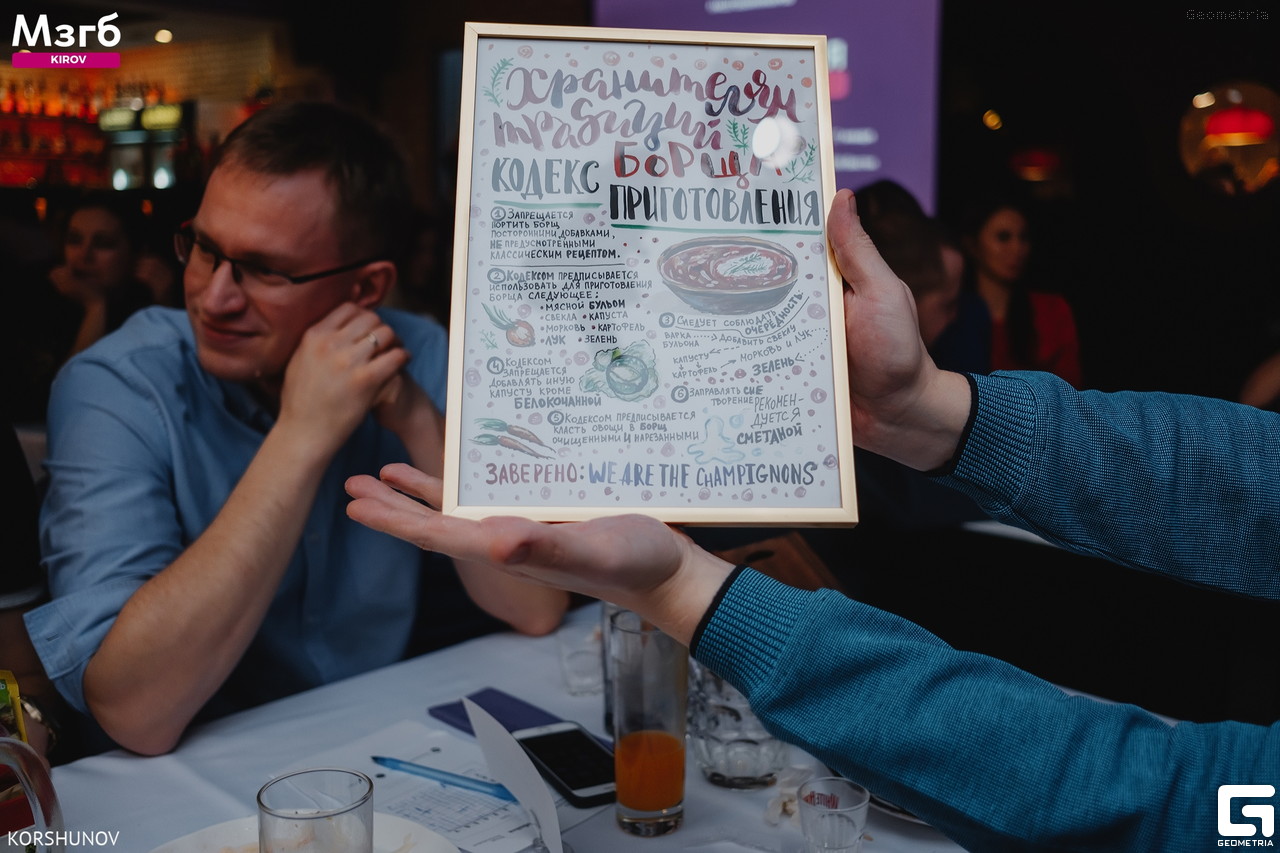 Мзгб
KIROV
Geometria
Хранителям
традиций
БОРЩА
КОДЕКС
ПРИГОТОВЛЕНИЯ
① ЗАПРЕЩАЕТСЯ
ПОРТИТЬ БОРЩ
ПОСТОРОННИМИ ДОБАВКАМИ,
НЕ ПРЕДУСМОТРЕННЫМИ
КЛАССИЧЕСКИМ РЕЦЕПТОМ.
② КОДЕКСОМ ПРЕДПИСЫВАЕТСЯ
ИСПОЛЬЗОВАТЬ ДЛЯ ПРИГОТОВЛЕНИЯ
БОРЩА СЛЕДУЮЩЕЕ:
• МЯСНОЙ БУЛЬОН
• СВЕКЛА • КАПУСТА
• МОРКОВЬ • КАРТОФЕЛЬ
• ЛУК • ЗЕЛЕНЬ
③ СЛЕДУЕТ СОБЛЮДАТЬ
ОЧЕРЕДНОСТЬ:
ВАРКА БУЛЬОНА
ДОБАВИТЬ СВЕКЛУ
МОРКОВЬ И ЛУК
КАПУСТУ
КАРТОФЕЛЬ
ЗЕЛЕНЬ
④ КОДЕКСОМ
ЗАПРЕЩАЕТСЯ
ДОБАВЛЯТЬ ИНУЮ
КАПУСТУ КРОМЕ
БЕЛОКОЧАННОЙ
⑤ КОДЕКСОМ ПРЕДПИСЫВАЕТСЯ
КЛАСТЬ ОВОЩИ В БОРЩ
ОЧИЩЕННЫМИ И НАРЕЗАННЫМИ
⑥ ЗАПРАВЛЯТЬ СИЕ
ТВОРЕНИЕ РЕКОМЕН-
ДУЕТСЯ
СМЕТАНОЙ
ЗАВЕРЕНО: WE ARE THE CHAMPIGNONS
KORSHUNOV
GEOMETRIA